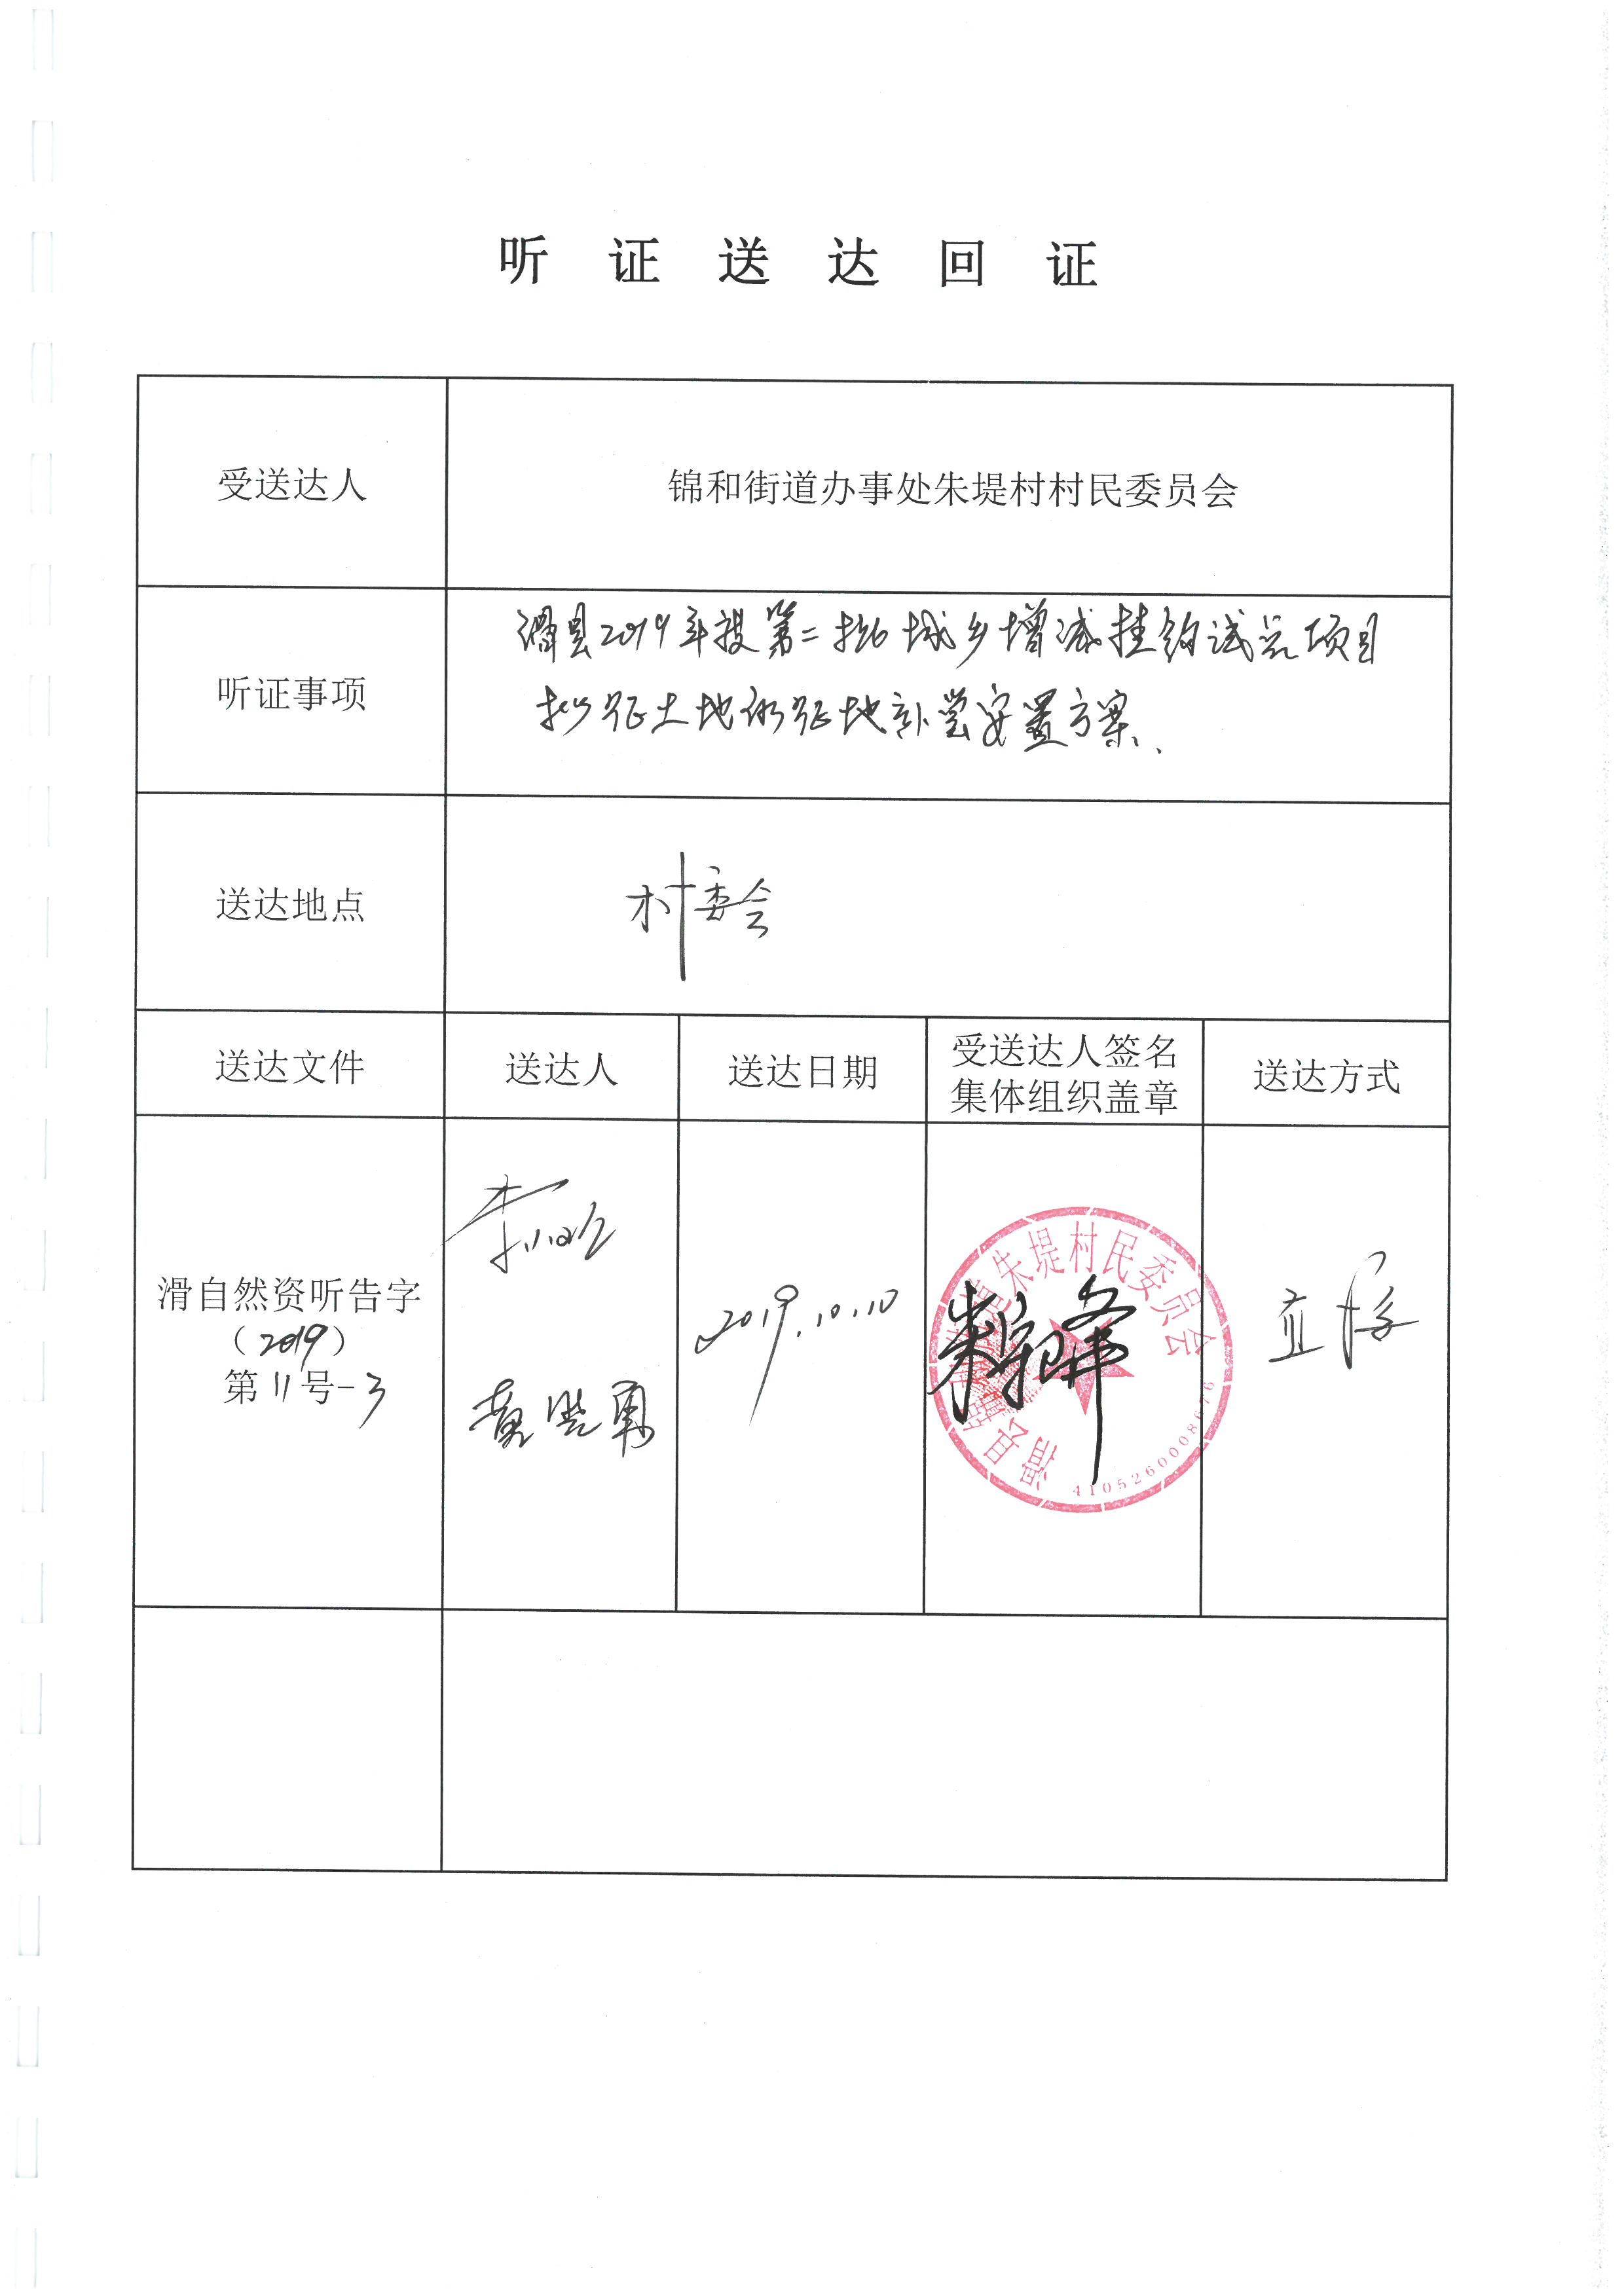 听证送达回证
受送达人
锦和街道办事处朱堤村村民委员会
听证事项
滑县2019年度第二批城乡增减挂钩试点项目
拟征土地的征地补偿安置方案、
送达地点
村委会
送达文件
送达人
送达日期
受送达人签名
集体组织盖章
送达方式
滑自然资听告字
（2019）
第11号-3
2019.10.10
朱堤村民委员会
滑县
4105260008676
直接